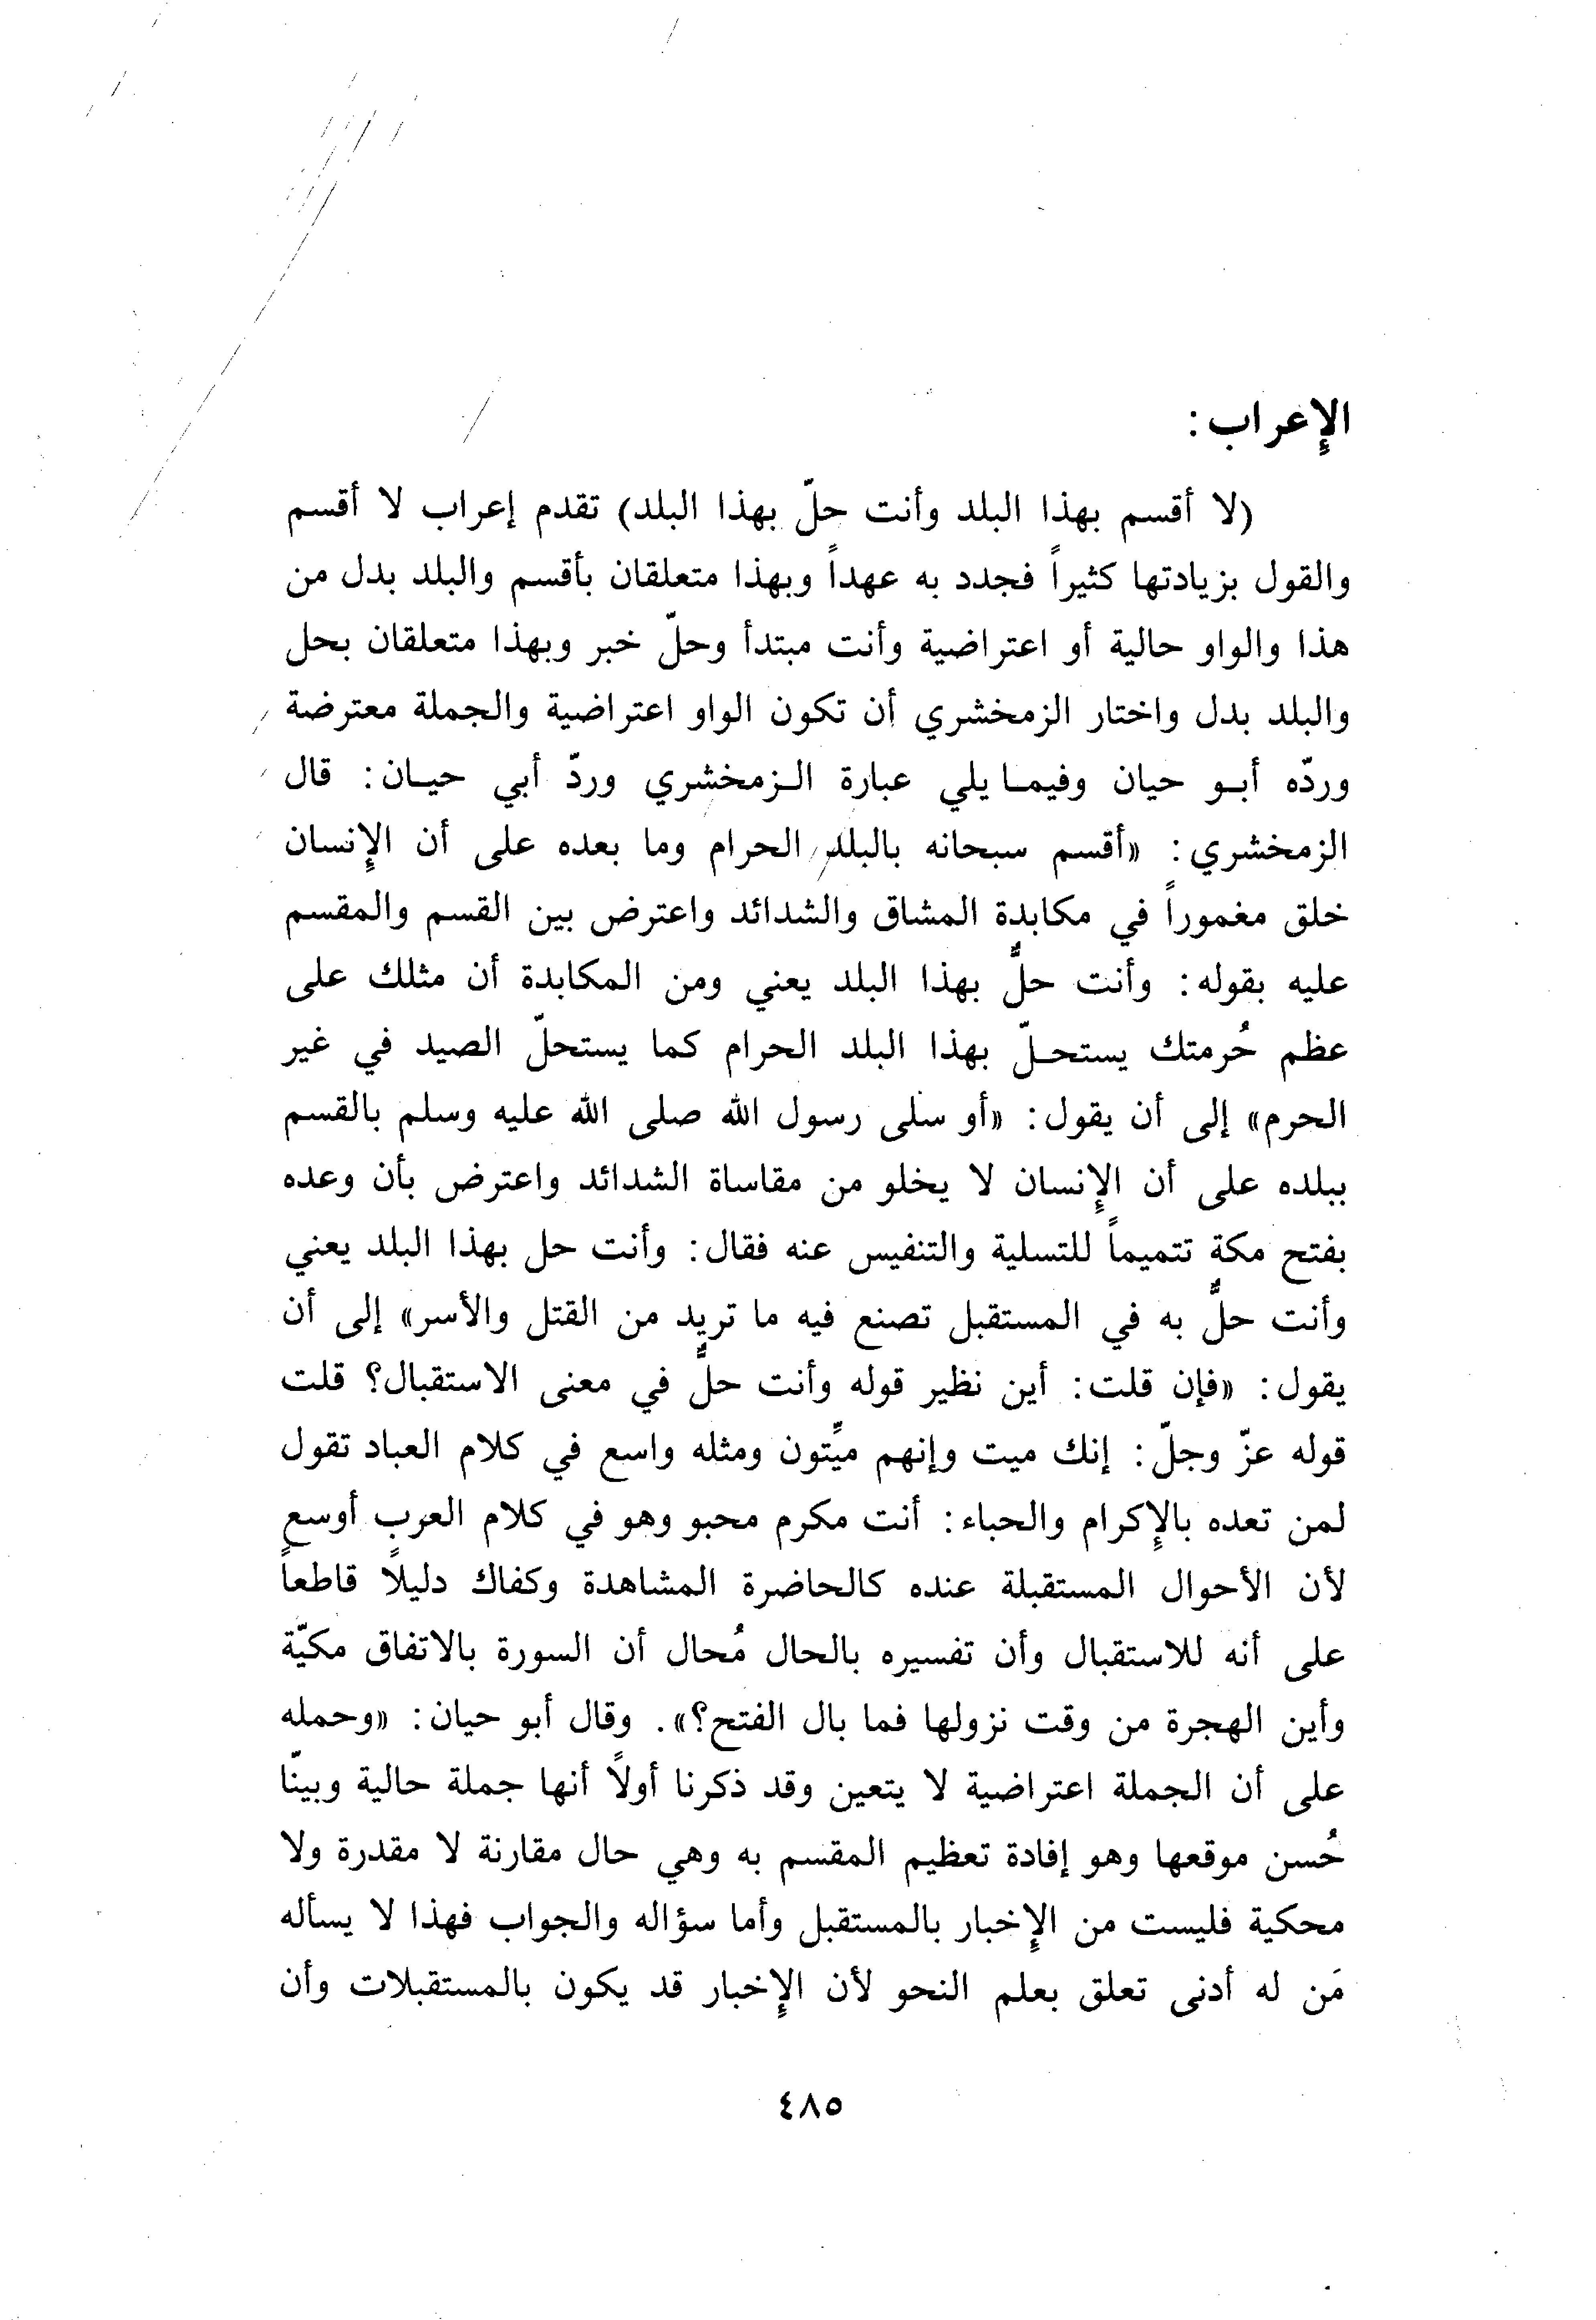 الإعراب :
(لا أقسم بهذا البلد وأنت حلّ بهذا البلد) تقدم إعراب لا أقسم
والقول بزيادتها كثيراً فجدد به عهداً وبهذا متعلقان بأقسم والبلد بدل من
هذا والواو حالية أو اعتراضية وأنت مبتدأ وحلّ خبر وبهذا متعلقان بحل
والبلد بدل واختار الزمخشري أن تكون الواو اعتراضية والجملة معترضة
وردّه أبو حيان وفيما يلي عبارة الزمخشري وردّ أبي حيان: قال
الزمخشري: «أقسم سبحانه بالبلد الحرام وما بعده على أن الإنسان
خلق مغموراً في مكابدة المشاق والشدائد واعترض بين القسم والمقسم
عليه بقوله: وأنت حلٌّ بهذا البلد يعني ومن المكابدة أن مثلك على
عظم حُرمتك يستحلّ بهذا البلد الحرام كما يستحلّ الصيد في غير
الحرم» إلى أن يقول: «أو سلى رسول الله صلى الله عليه وسلم بالقسم
ببلده على أن الإنسان لا يخلو من مقاساة الشدائد واعترض بأن وعده
بفتح مكة تتميماً للتسلية والتنفيس عنه فقال: وأنت حل بهذا البلد يعني
وأنت حلٌّ به في المستقبل تصنع فيه ما تريد من القتل والأسر» إلى أن
يقول: «فإن قلت: أين نظير قوله وأنت حلٌّ في معنى الاستقبال؟ قلت
قوله عزّ وجلّ: إنك ميت وإنهم ميِّتون ومثله واسع في كلام العباد تقول
لمن تعده بالإكرام والحباء: أنت مكرم محبو وهو في كلام العرب أوسع
لأن الأحوال المستقبلة عنده كالحاضرة المشاهدة وكفاك دليلاً قاطعاً
على أنه للاستقبال وأن تفسيره بالحال مُحال أن السورة بالاتفاق مكيّة
وأين الهجرة من وقت نزولها فما بال الفتح؟». وقال أبو حيان: «وحمله
على أن الجملة اعتراضية لا يتعين وقد ذكرنا أولاً أنها جملة حالية وبينّا
حُسن موقعها وهو إفادة تعظيم المقسم به وهي حال مقارنة لا مقدرة ولا
محكية فليست من الإخبار بالمستقبل وأما سؤاله والجواب فهذا لا يسأله
مَن له أدنى تعلق بعلم النحو لأن الإخبار قد يكون بالمستقبلات وأن
٤٨٥